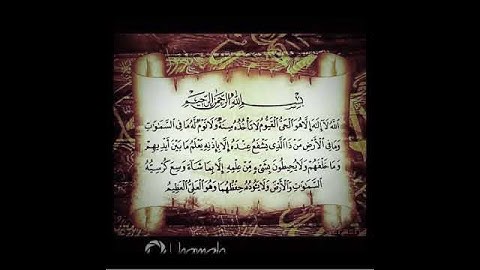 بِسْمِ اللَّهِ الرَّحْمَٰنِ الرَّحِيمِ
اللَّهُ لَا إِلَٰهَ إِلَّا هُوَ الْحَيُّ الْقَيُّومُ لَا تَأْخُذُهُ سِنَةٌ وَلَا نَوْمٌ لَهُ مَا فِي السَّمَاوَاتِ
وَمَا فِي الْأَرْضِ مَنْ ذَا الَّذِي يَشْفَعُ عِنْدَهُ إِلَّا بِإِذْنِهِ يَعْلَمُ مَا بَيْنَ أَيْدِيهِمْ
وَمَا خَلْفَهُمْ وَلَا يُحِيطُونَ بِشَيْءٍ مِنْ عِلْمِهِ إِلَّا بِمَا شَاءَ وَسِعَ كُرْسِيُّهُ
السَّمَاوَاتِ وَالْأَرْضَ وَلَا يَئُودُهُ حِفْظُهُمَا وَهُوَ الْعَلِيُّ الْعَظِيمُ